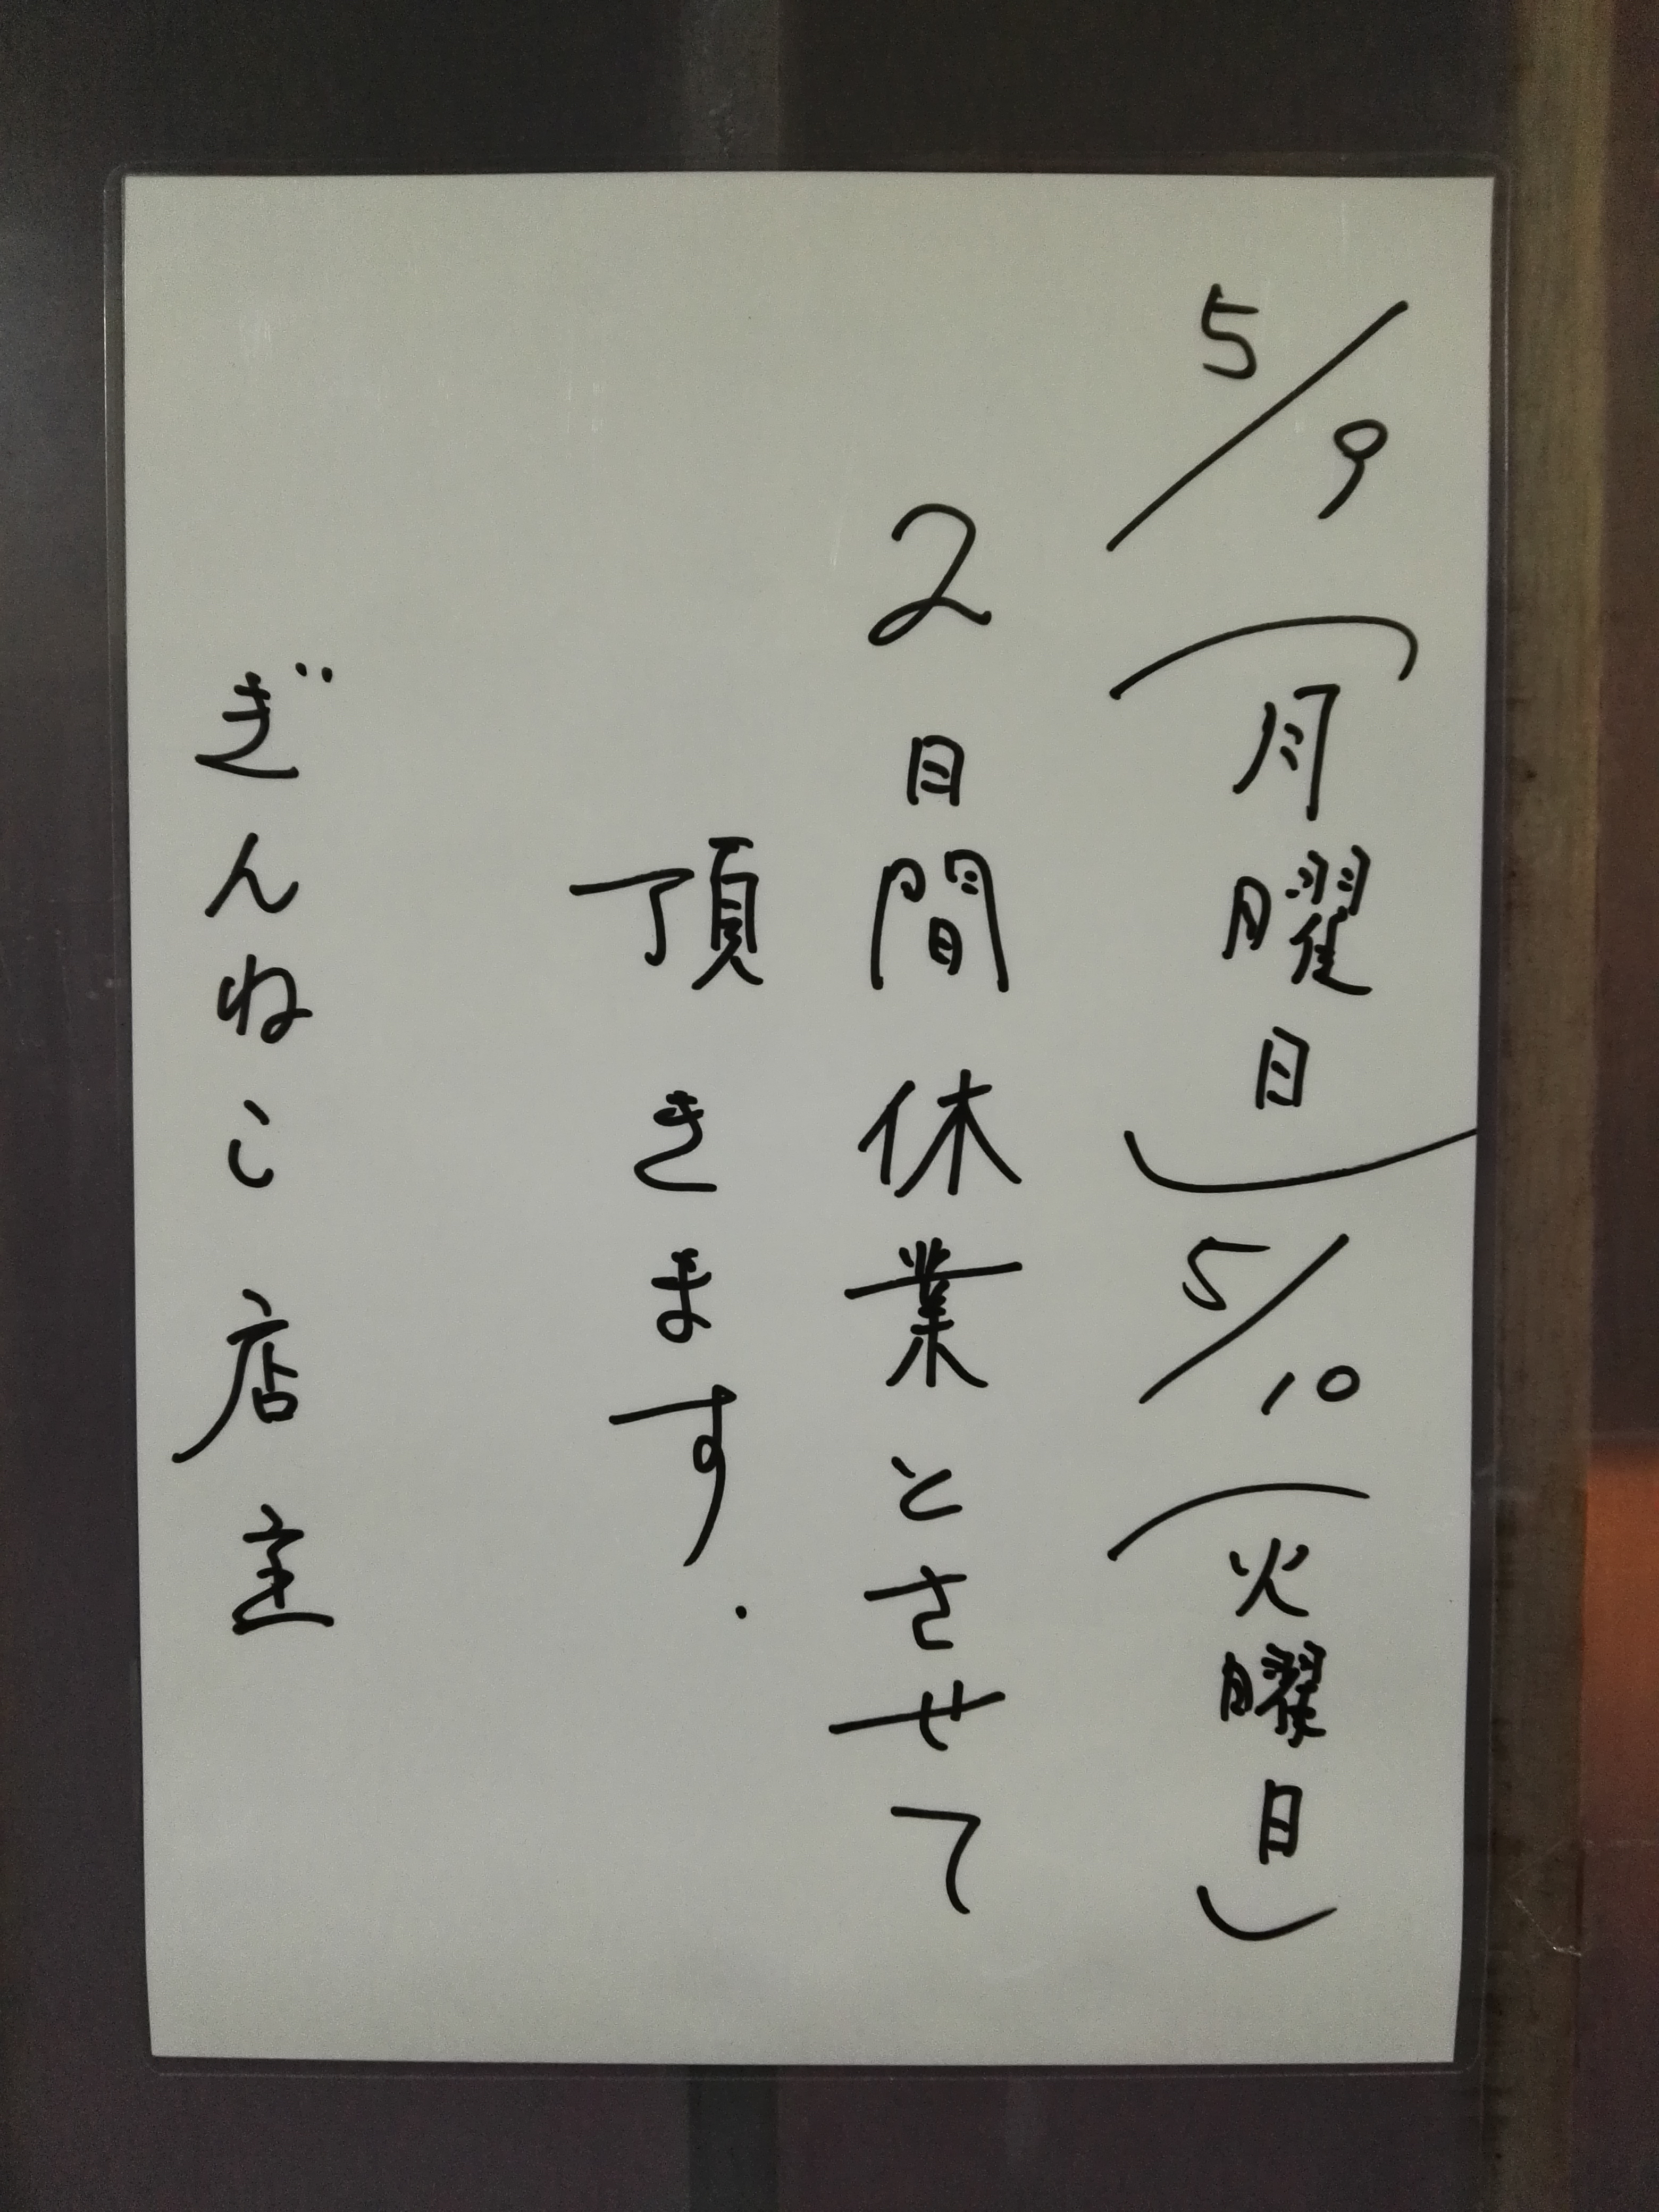 5/9(月曜日)5/10(火曜日)
2日間休業とさせて
頂きます.
ぎんねこ店主